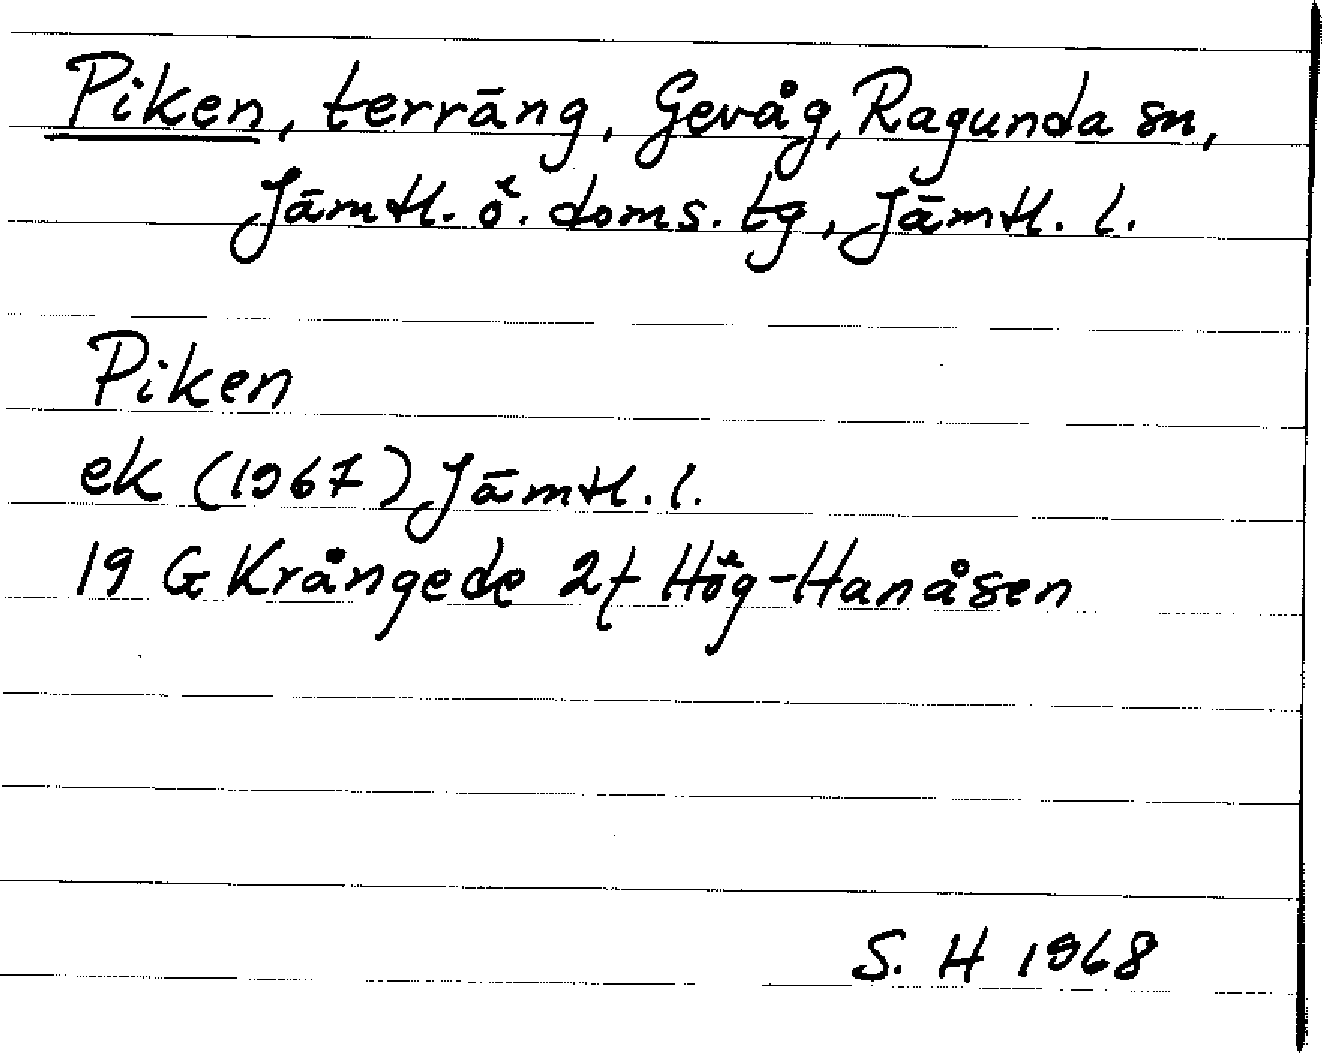 Piken, terräng, Gevåg, Ragunda sn,
Jämtl. ö. doms. tg, Jämtl. l.
Piken
ek (1967) Jämtl. l.
19 G Krångede 2f Hög-Hanåsen
S. H 1968